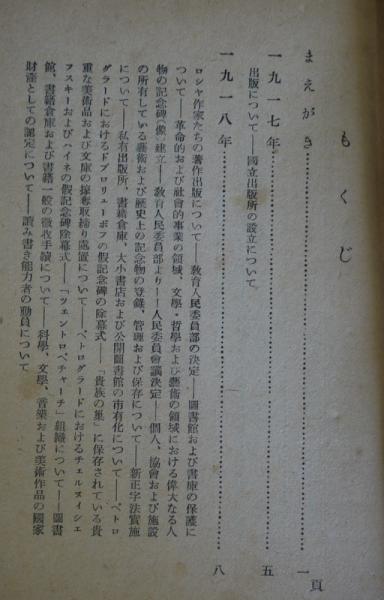 もくじ
まえがき……一頁
一九一七年……五
出版について——國立出版所の設立について
一九一八年……八
ロシヤ作家たちの著作出版について——敎育人民委員部の決定——圖書館および書庫の保護に
ついて——革命的および社會的事業の領域、文學・哲學および藝術の領域における偉大なる人
物の記念碑(像)建立——敎育人民委員部より——人民委員會議決定——個人、協會および施設
の所有している藝術および歷史上の記念物の登錄、管理および保存について——新正字法實施
について——私有出版所、書籍倉庫、大小書店および公開圖書館の市有化について——ペトロ
グラードにおけるドブロリューボフの假記念碑の除幕式——「貴族の巢」に保存されている貴
重な美術品および文庫の掠奪取締り處置について——ペトログラードにおけるチェルヌィシェ
フスキーおよびハイネの假記念碑除幕式——「ツェントロペチャーチ」組織について——圖書
館、書籍倉庫および書籍一般の徵收手續について——科學、文學、音樂および美術作品の國家
財產としての認定について——讀み書き能力者の動員について